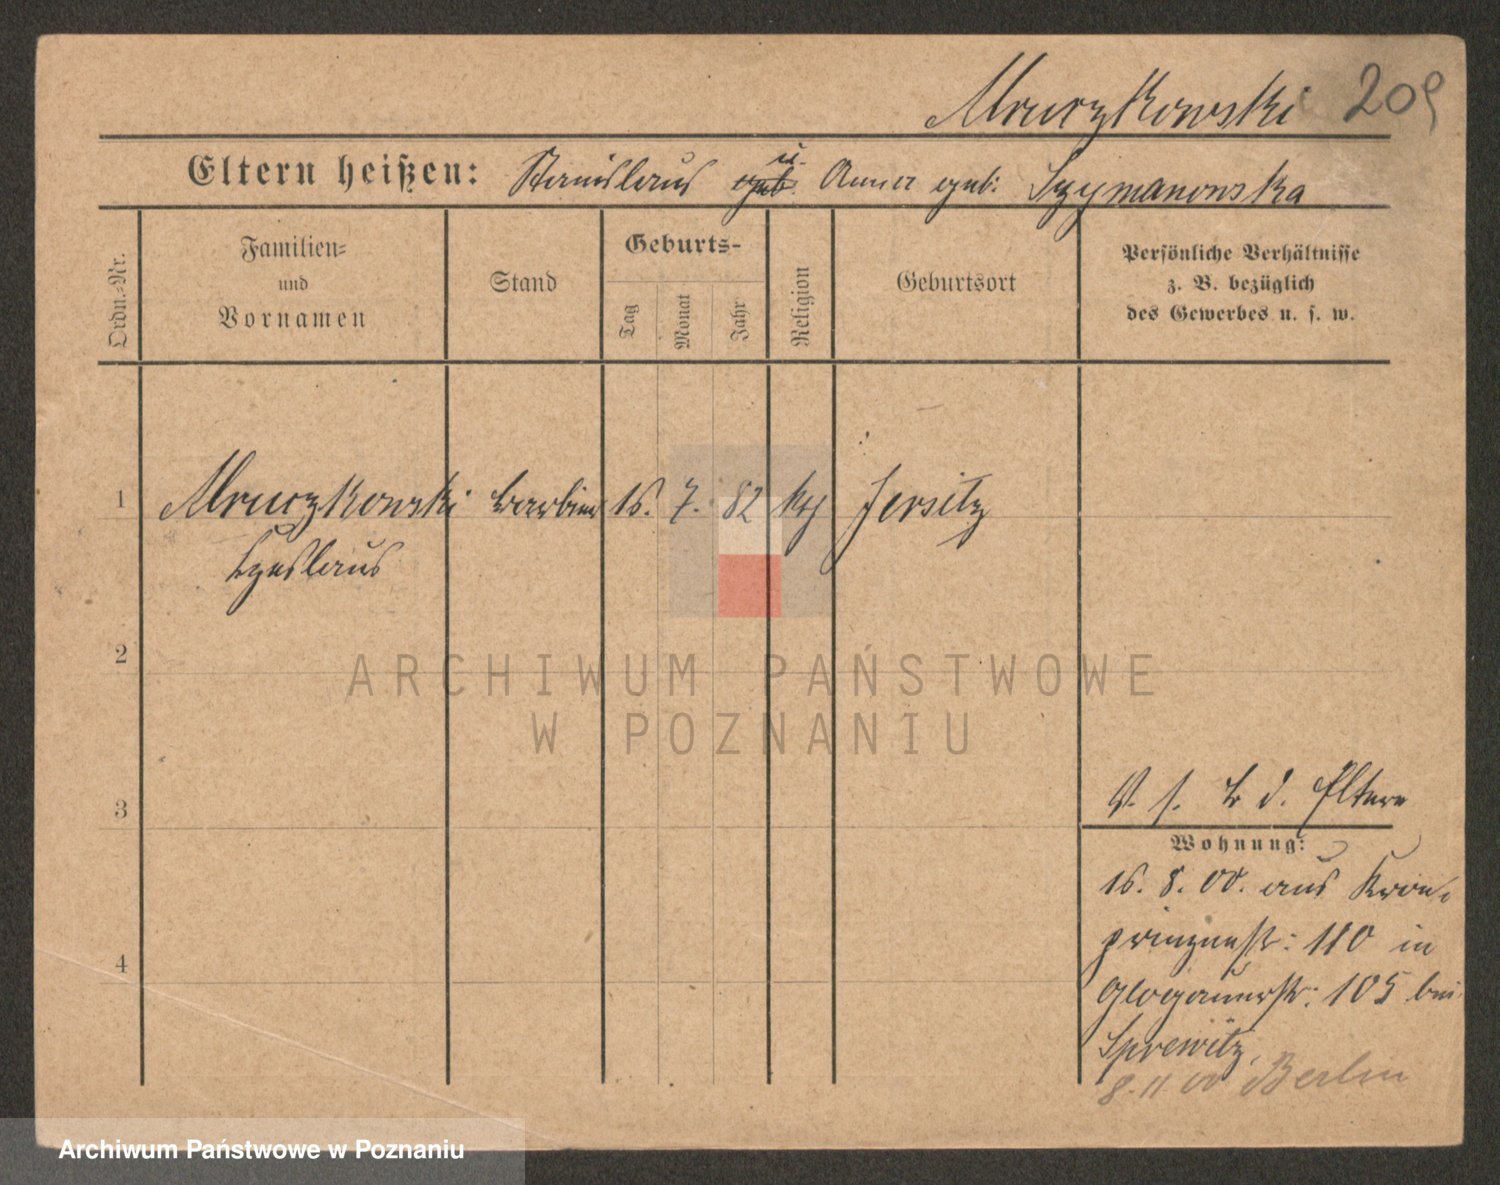 Mruczkowski 209
Eltern heißen: Stanislaus geb. u. Anna geb: Szymanowska
Ordn.-Nr.
Familien-
und
Vornamen
Stand
Geburts-
Tag
Monat
Jahr
Religion
Geburtsort
Persönliche Verhältnisse
z. B. bezüglich
des Gewerbes u. s. w.
1 Mruczkowski Barbier 16. 7. 82 kth Jersitz
Czeslaus
2
3
4
V. s. b d. Eltern
Wohnung:
16. 8. 00. aus Kron-
prinzenstr: 110 in
Glogauerstr: 105 bei
Sprewitz,
8.11.00 Berlin
ARCHIWUM PAŃSTWOWE
W POZNANIU
Archiwum Państwowe w Poznaniu